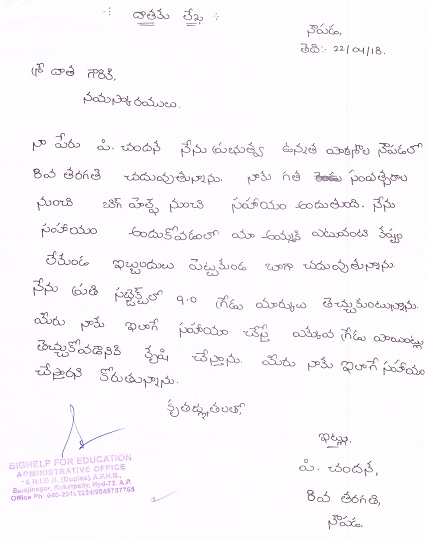 దాతకు లేఖ
నౌపడ,
తేది:- 22/04/18.
శ్రీ దాత గారికి,
నమస్కారములు.
నా పేరు పి. చందన నేను ప్రభుత్వ ఉన్నత పాఠశాల నౌపడలో
8వ తరగతి చదువుతున్నాను. నాకు గత సంవత్సరాల
నుంచి బిగ్ హెల్ప్ నుంచి సహాయం అందుతుంది. నేను
సహాయం అందుకోవడంలో మా అమ్మకి ఎటువంటి కష్టం
లేకుండ ఇబ్బందులు పెట్టకుండ బాగా చదువుతున్నాను.
నేను ప్రతి సబ్జెక్ట్‌లో 9.0 గ్రేడు మార్కులు తెచ్చుకుంటున్నాను.
మీరు నాకు ఇలాగే సహాయం చేస్తే ఎక్కువ గ్రేడు పాయింట్లు
తెచ్చుకోవడానికి కృషి చేస్తాను. మీరు నాకు ఇలాగే సహాయం
చేస్తారని కోరుతున్నాను.
కృతజ్ఞతలతో,
ఇట్లు,
పి. చందన,
8వ తరగతి,
నౌపడ.
BIGHELP FOR EDUCATION
ADMINISTRATIVE OFFICE
H.I.G.H. (Duplex), A.P.H.B.,
Balajinagar, Kukatpally, Hyd-72. A.P.
Office Ph: 040-